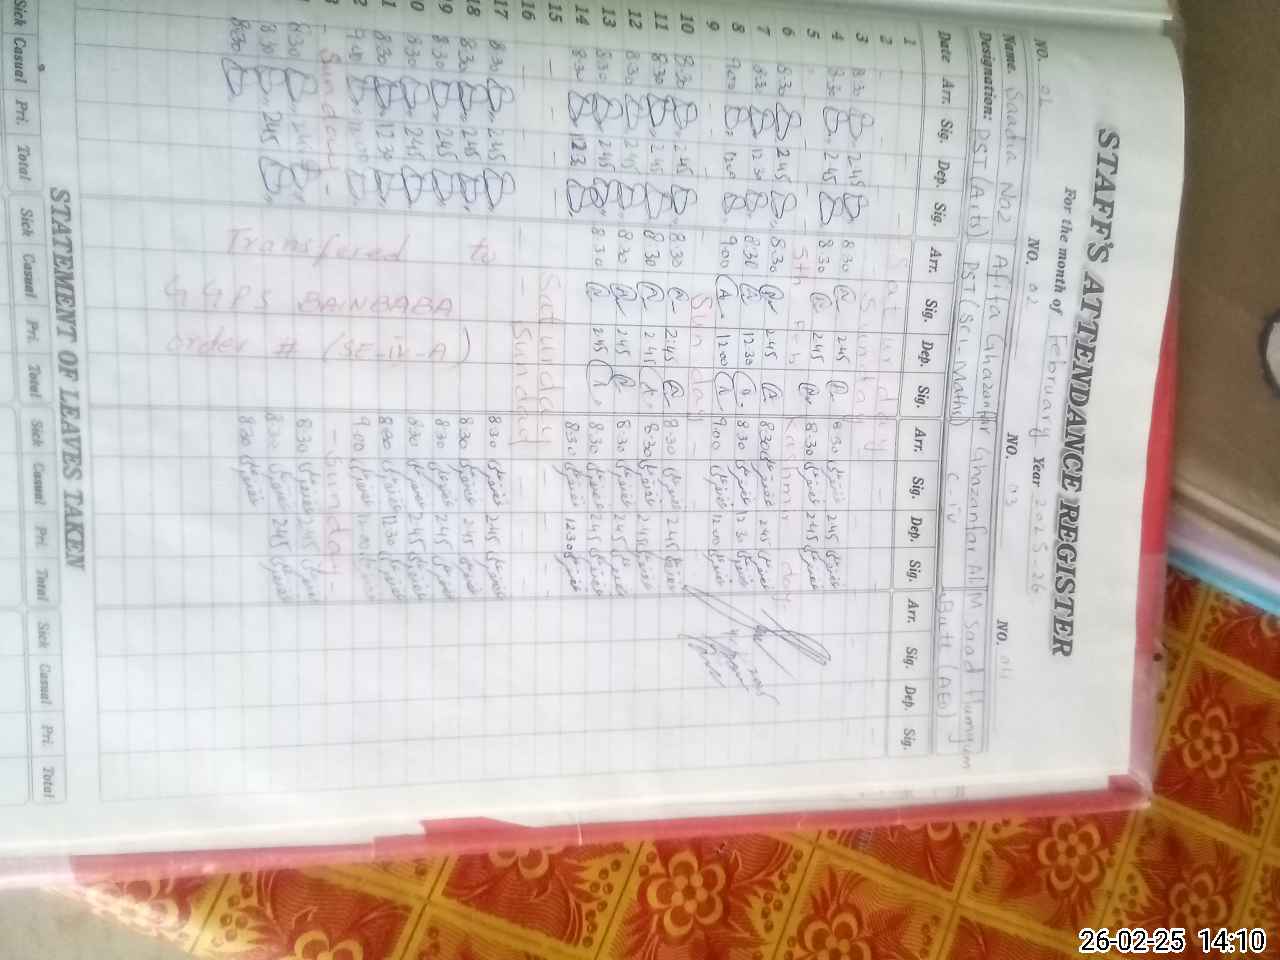 STAFF'S ATTENDANCE REGISTER
For the month of February Year 2025-26
NO. 01 NO. 02 NO. 03 NO. 04
Name. Saadia Naz Afifa Ghazanfar Ghazanfar Ali M Saad Humayum
Designation: PST (Arts) PST (Sci, Maths) C-IV Butt (AEO)
Date Arr. Sig. Dep. Sig. Arr. Sig. Dep. Sig. Arr. Sig. Dep. Sig. Arr. Sig. Dep. Sig.
1 - - - Saturday
2 - - - Sunday - -
3 8:30 2:45 8:30 2:45 8:30 2:45
4 8:30 2:45 8:30 2:45 8:30 2:45
5 5th Feb Kashmir day
6 8:30 2:45 8:30 2:45 8:30 2:45
7 8:30 12:30 8:30 12:30 8:30 12:30
8 9:00 12:00 9:00 12:00 9:00 12:00
9 - - - Sunday -
10 8:30 2:45 8:30 2:45 8:30 2:45
11 8:30 2:45 8:30 2:45 8:30 2:45
12 8:30 2:45 8:30 2:45 8:30 2:45
13 8:30 2:45 8:30 2:45 8:30 2:45
14 8:30 12:30 8:30 12:30
15 - - - Saturday - - -
16 - - - Sunday - - -
17 8:30 2:45 8:30 2:45
18 8:30 2:45 8:30 2:45
19 8:30 2:45 8:30 2:45
20 8:30 2:45 8:30 2:45
1 8:30 12:30 8:30 12:30
2 9:00 12:00 9:00 12:00
3 - Sunday - - Sunday -
8:30 2:45 8:30 2:45
8:30 2:45 8:30 2:45
8:30 8:30
Transfered to
GGPS BAINBABA
order # (SE-IV-A)
STATEMENT OF LEAVES TAKEN
Sick Casual Pri. Total Sick Casual Pri. Total Sick Casual Pri. Total Sick Casual Pri. Total
26-02-25 14:10